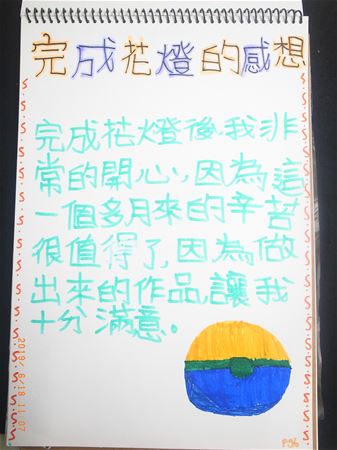 完成花燈的感想
完成花燈後,我非
常的開心,因為這
一個多月來的辛苦
很值得了,因為做
出來的作品,讓我
十分滿意。
2019/6/18 11:07
P36